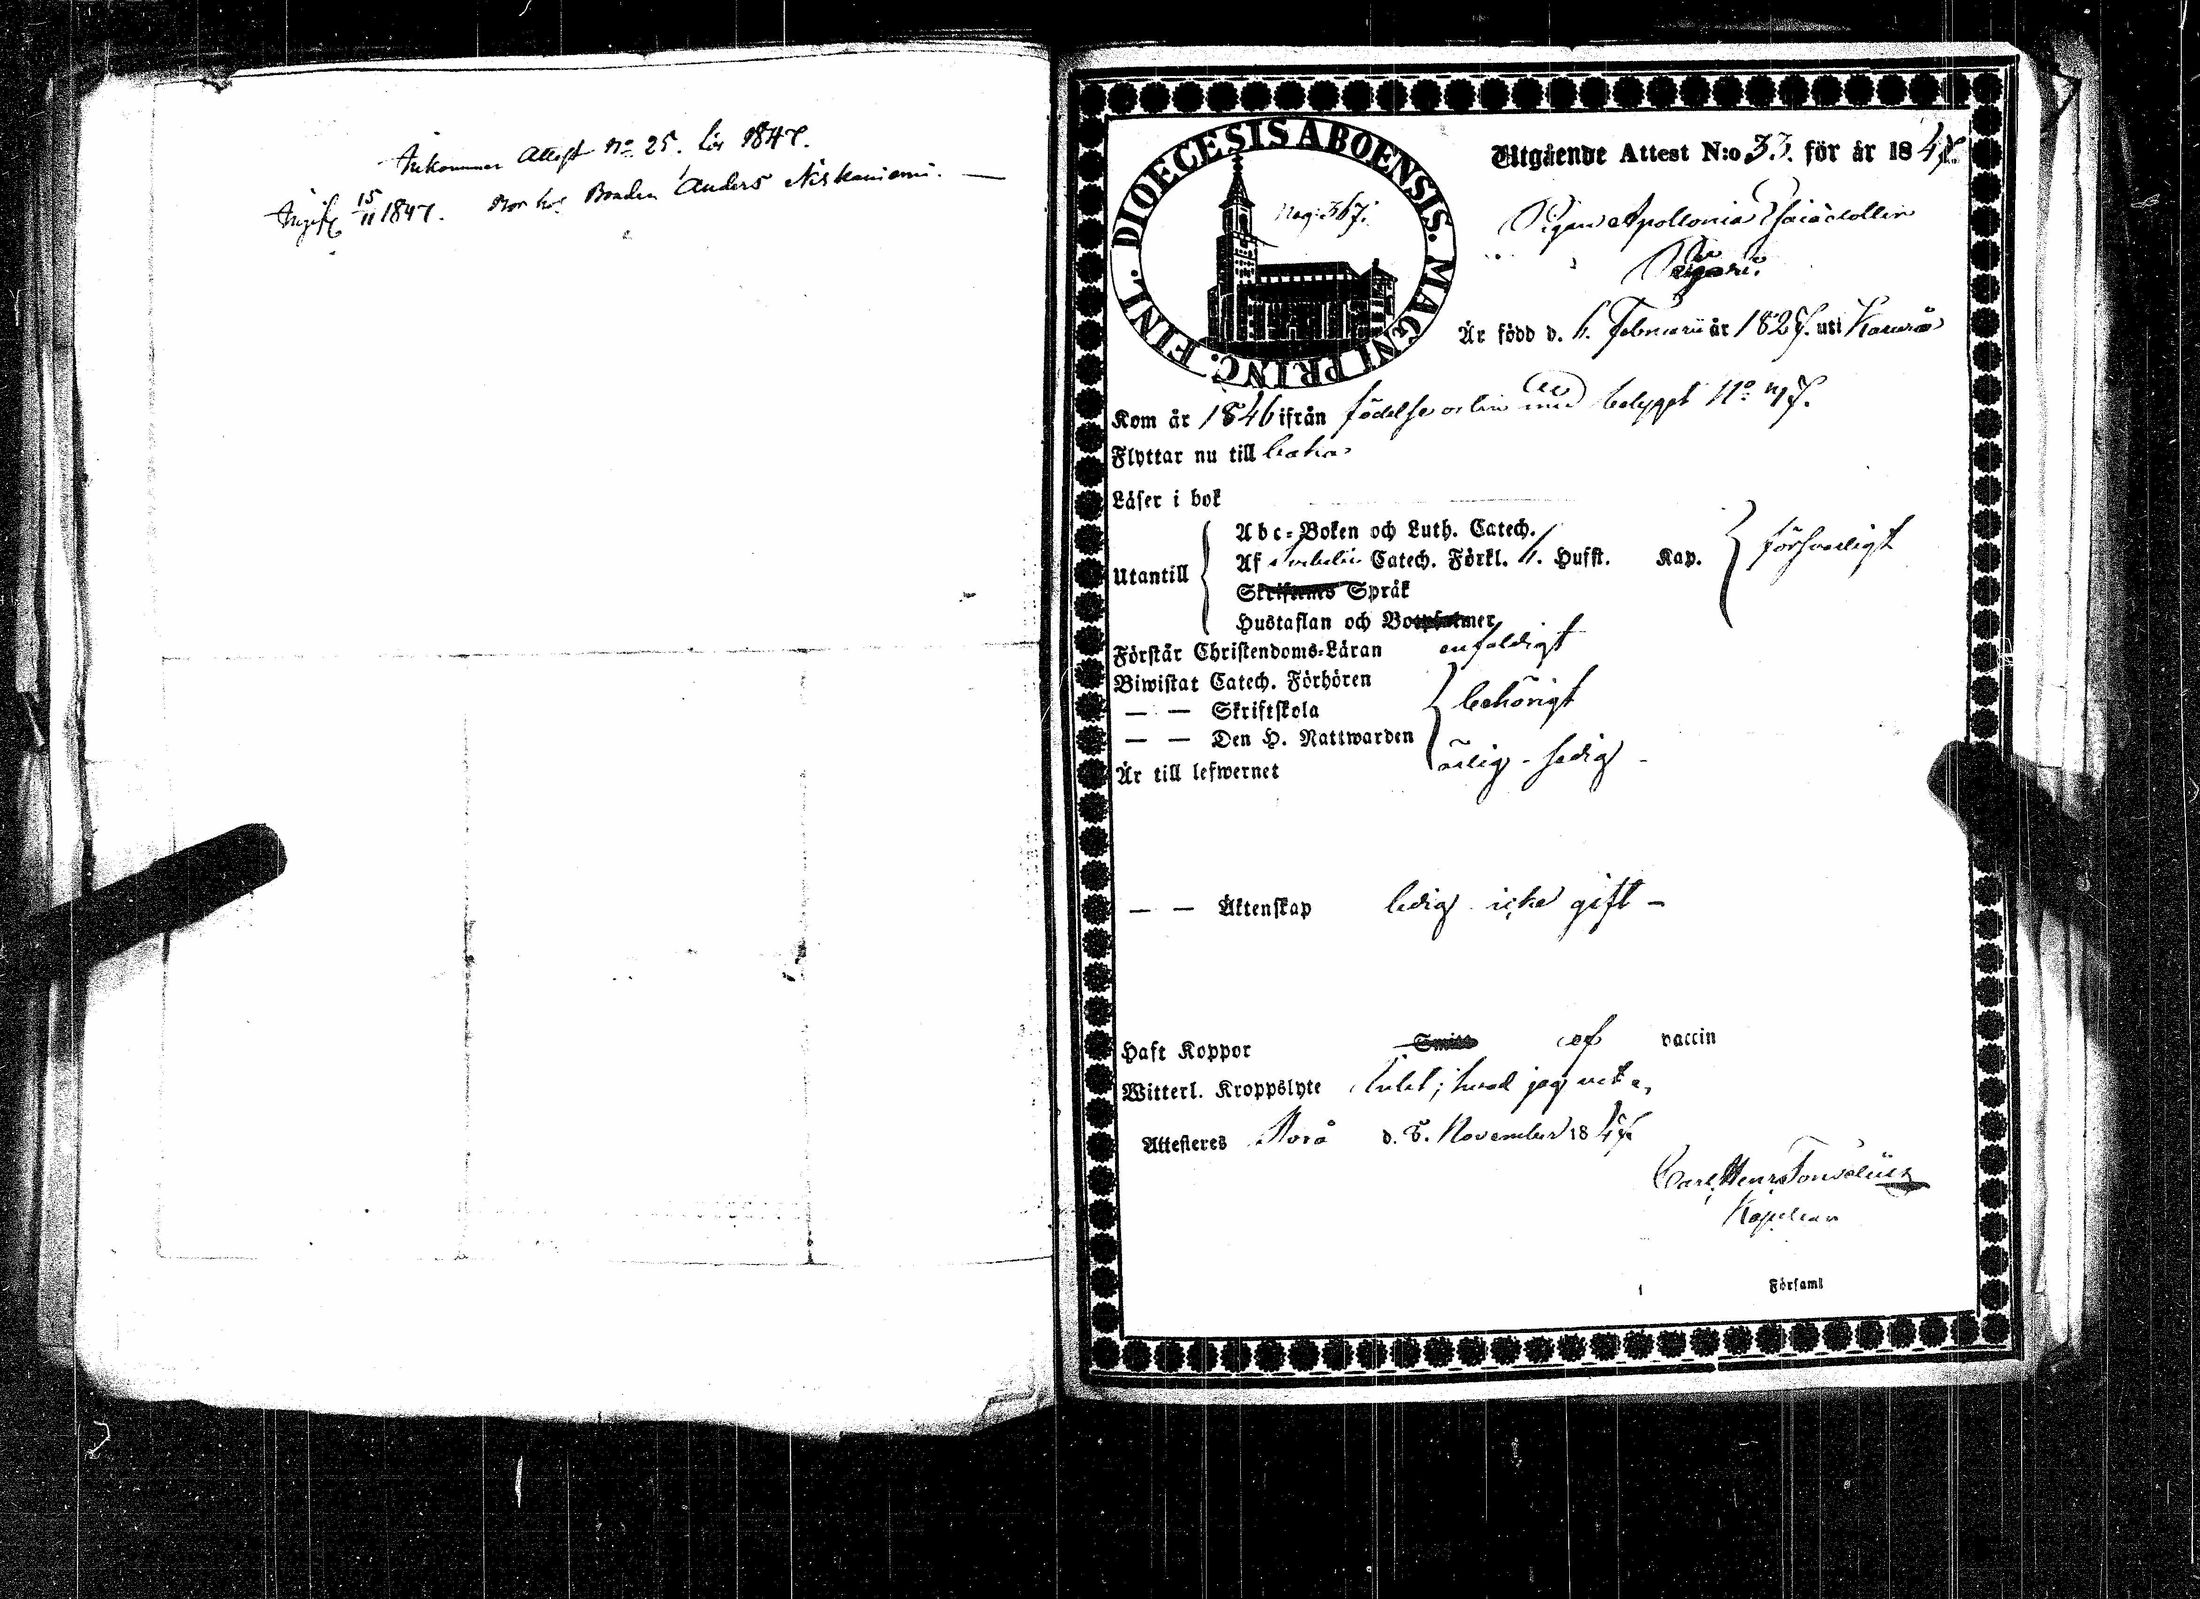 Inkommen Attest No 25. för 1847.
15/11 1847. Bor hos Bonden Anders Niskaniemi. —
DIOECESIS ABOENSIS. MAGNI PRINC. FINL.
Pag: 367.
Utgående Attest N:o 33. för år 1847.
Pigan Apollonia Esaiædotter
Är född d. 6. Februarii år 1827. uti Kauvo
Kom år 1846 ifrån födelseorten med betyget No 47.
Flyttar nu till
Läser i bok
Utantill
Abc-Boken och Luth. Catech.
Af Svebelii Catech. Förkl. 1. Hufst. Kap. försvarligt
Skriftenes Språk
Hustaflan och Botpsalmer
Förstår Christendoms-Läran enfaldigt
Biwistat Catech. Förhören
— — Skriftskola behörigt
— — Den H. Nattwarden
Är till lefwernet ärlig - sedig -
— — Äktenskap ledig icke gift —
Haft Koppor Smitt af vaccin
Witterl. Kroppslyte Intet; hvad jag vet.
Attesteres d. 8. November 1847
Carl Henr:
Kapellan
Församl